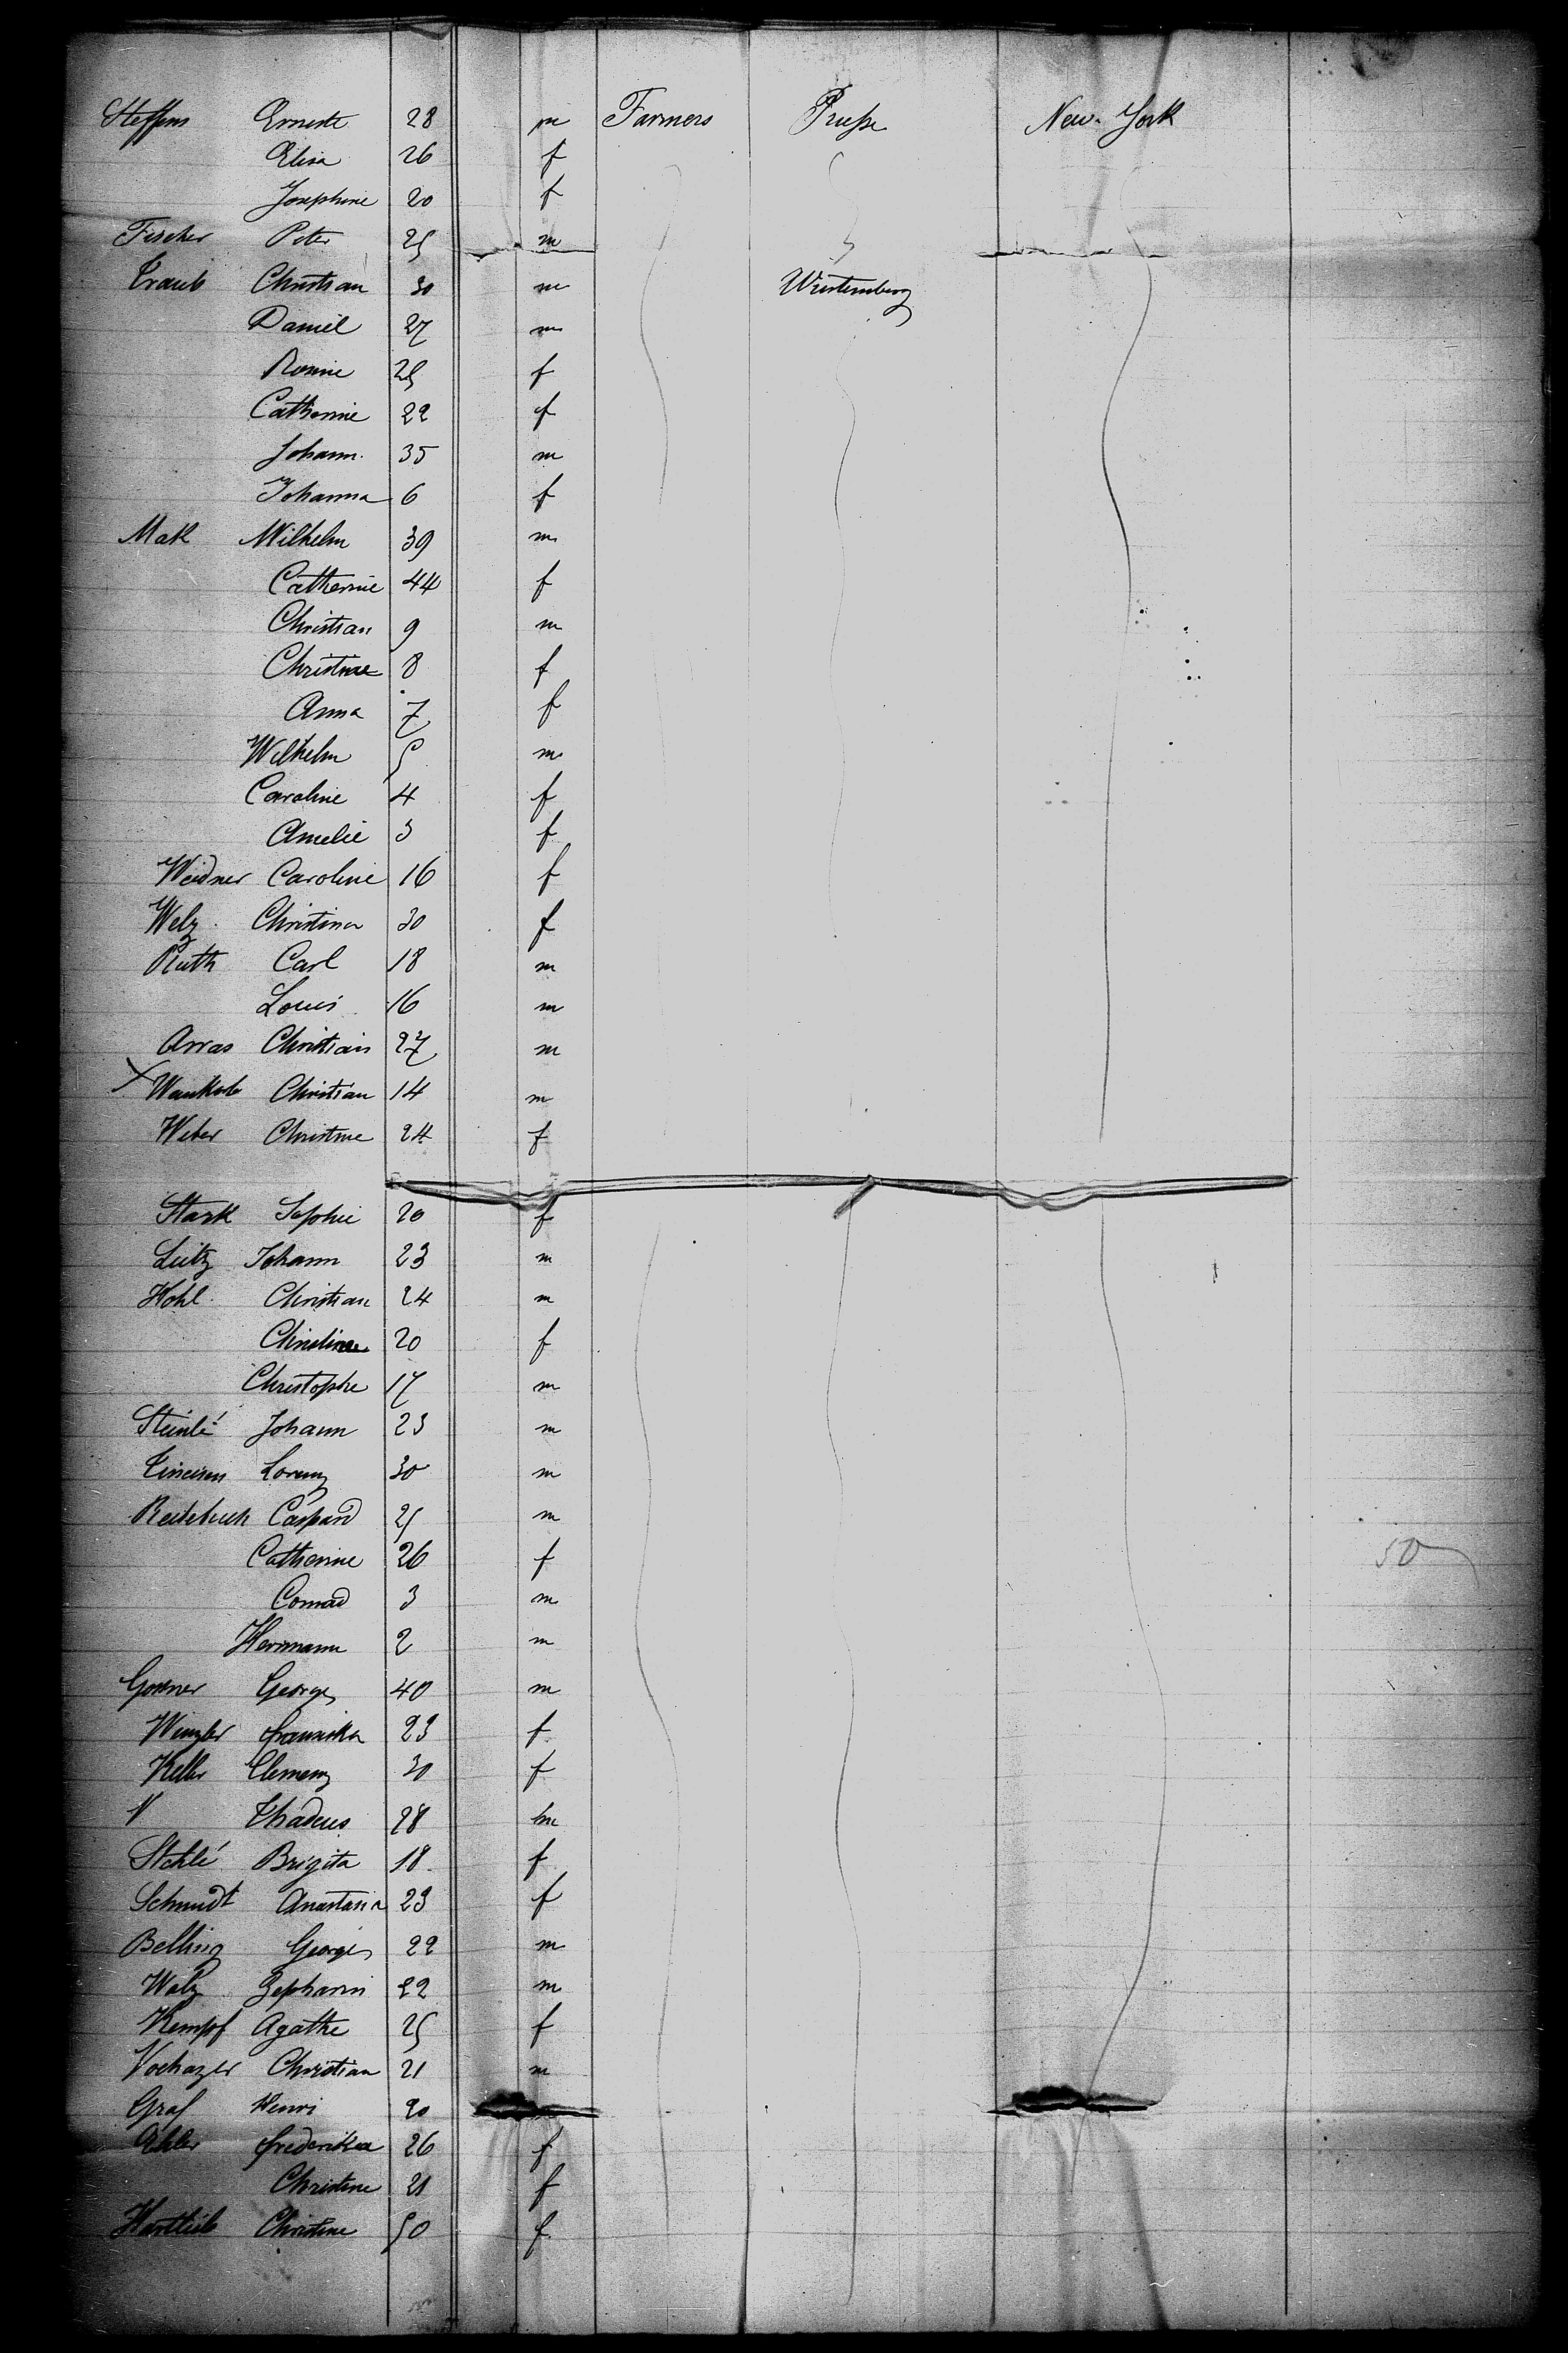 Steffens Erneste 28 m Farmers Prusse New-York
Elisa 26 f
Josephine 20 f
Fischer Peter 25 m
Traub Christian 30 m Wurtemberg
Daniel 27 m
Rosine 25 f
Catherine 22 f
Johann. 35 m
Johanna 6 f
Mak Wilhelm 39 m
Catherine 44 f
Christian 9 m
Christine 8 f
Anna 7 f
Wilhelm 5 m
Caroline 4 f
Amelie 3 f
Weidner Caroline 16 f
Welz Christina 30 f
Ruth Carl 18 m
Louis 16 m
Arras Christian 27 m
X Christian 14 m
Weber Christine 24 f
Stark Sophie 20 f
Leitz Johann 23 m
Hohl Christian 24 m
Christine 20 f
Christophe 17 m
Steinlé Johann 23 m
Lorenz 30 m
Caspard 25 m
Catherine 26 f
50
Conrad 3 m
Hermann 2 m
George 40 m
Winzler Franziska 23 f
Keller Clemenz 30 f
Thadeus 28 m
Stehlé Brigita 18 f
Schmidt Anastasia 23 f
Belling George 22 m
Walz Zepharin 22 m
Kempf Agathe 25 f
Christian 21 m
Graf Henri 20
Ehler Frederika 26 f
Christine 21 f
Hartlieb Christine 50 f